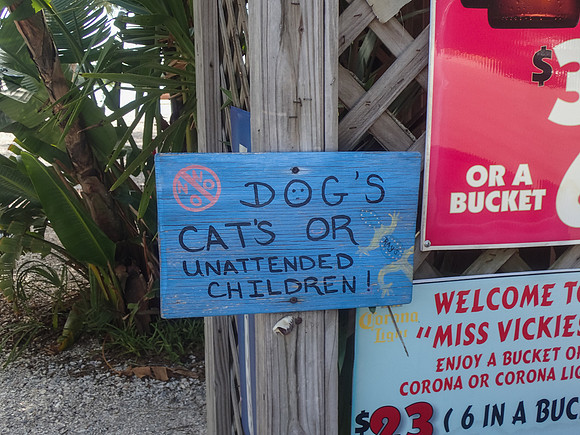 NO
DOG'S
CAT'S OR
UNATTENDED
CHILDREN!
$3
OR A
BUCKET
Corona
WELCOME TO
"MISS VICKIES
ENJOY A BUCKET OF
CORONA OR CORONA LIG
$23 (6 IN A BUC